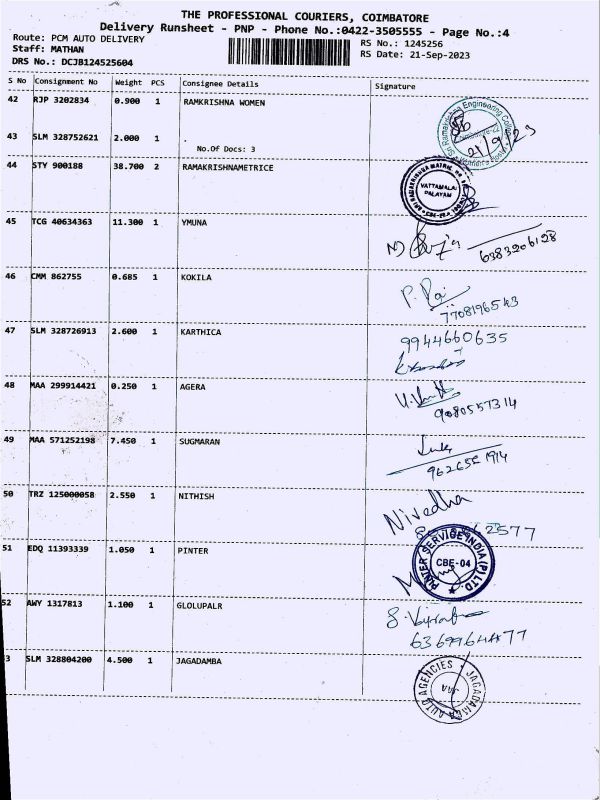 THE PROFESSIONAL COURIERS, COIMBATORE
Delivery Runsheet - PNP - Phone No.:0422-3505555 - Page No.:4
Route: PCM AUTO DELIVERY
RS No.: 1245256
Staff: MATHAN
RS Date: 21-Sep-2023
DRS No.: DCJB124525604
S No Consignment No Weight PCS Consignee Details Signature
42 RJP 3202834 0.900 1 RAMKRISHNA WOMEN
43 SLM 328752621 2.000 1 .
No.Of Docs: 3
21/9/23
44 STY 900188 38.700 2 RAMAKRISHNAMETRICE
VATTAMALAI
PALAYAM
45 TCG 40634363 11.300 1 YMUNA
6383206128
46 CMM 862755 0.685 1 KOKILA
7708196543
47 SLM 328726913 2.600 1 KARTHICA
9944660635
48 MAA 299914421 0.250 1 AGERA
9080557314
49 MAA 571252198 7.450 1 SUGMARAN
50 TRZ 125000058 2.550 1 NITHISH
Nivedha
51 EDQ 11393339 1.050 1 PINTER
PINTER SERVICE INDIA (P) LTD
CBE-04
52 AWY 1317813 1.100 1 GLOLUPALR
3 SLM 328804200 4.500 1 JAGADAMBA
JAGADAMBA AUTO AGENCIES